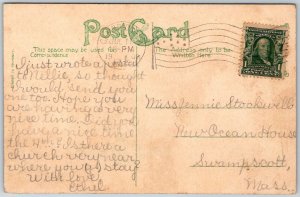 Post Card
This space may be used for
Correspondence
The Address only to be
Written Here
PM
I just wrote a postal
to Nellie, so thought
I would send you
one too. Hope you
are having a very
nice time. I did not
have a nice time
the 4th. Is there a
church very near
where you stay
with love
Ethel.
Miss Jennie Stockwell
New Ocean House
Swampscott,
Mass.